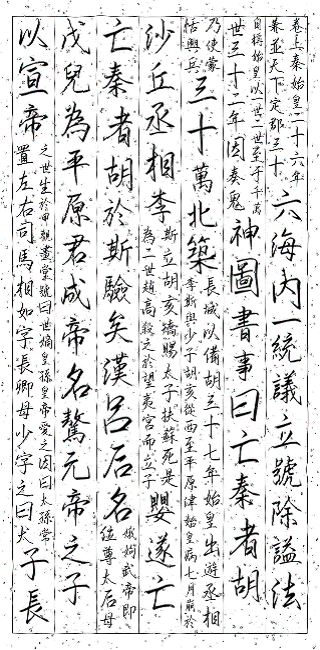 卷上秦始皇二十六年
兼並天下定郡三十
六海內一統議立號除謚法
自稱始皇以一世二世至于千萬
世三十二年因奏鬼神圖書事曰亡秦者胡
乃使蒙
恬興兵
三十萬北築
長城以備胡三十七年始皇出遊丞相
李斯與少子胡亥從西至平原津始皇病七月崩於
沙丘丞相李
斯立胡亥矯賜太子扶蘇死是
為二世趙高殺之於望夷宮而立子
嬰遂亡
亡秦者胡於斯驗矣漢呂后名
娥姁武帝即
位尊太后母
戊兒為平原君成帝名驁元帝之子
以宣帝
之世生於甲觀畫堂號曰世嫡皇孫皇帝愛之因曰太孫常
置左右司馬相如字長卿母少字之曰犬
子長